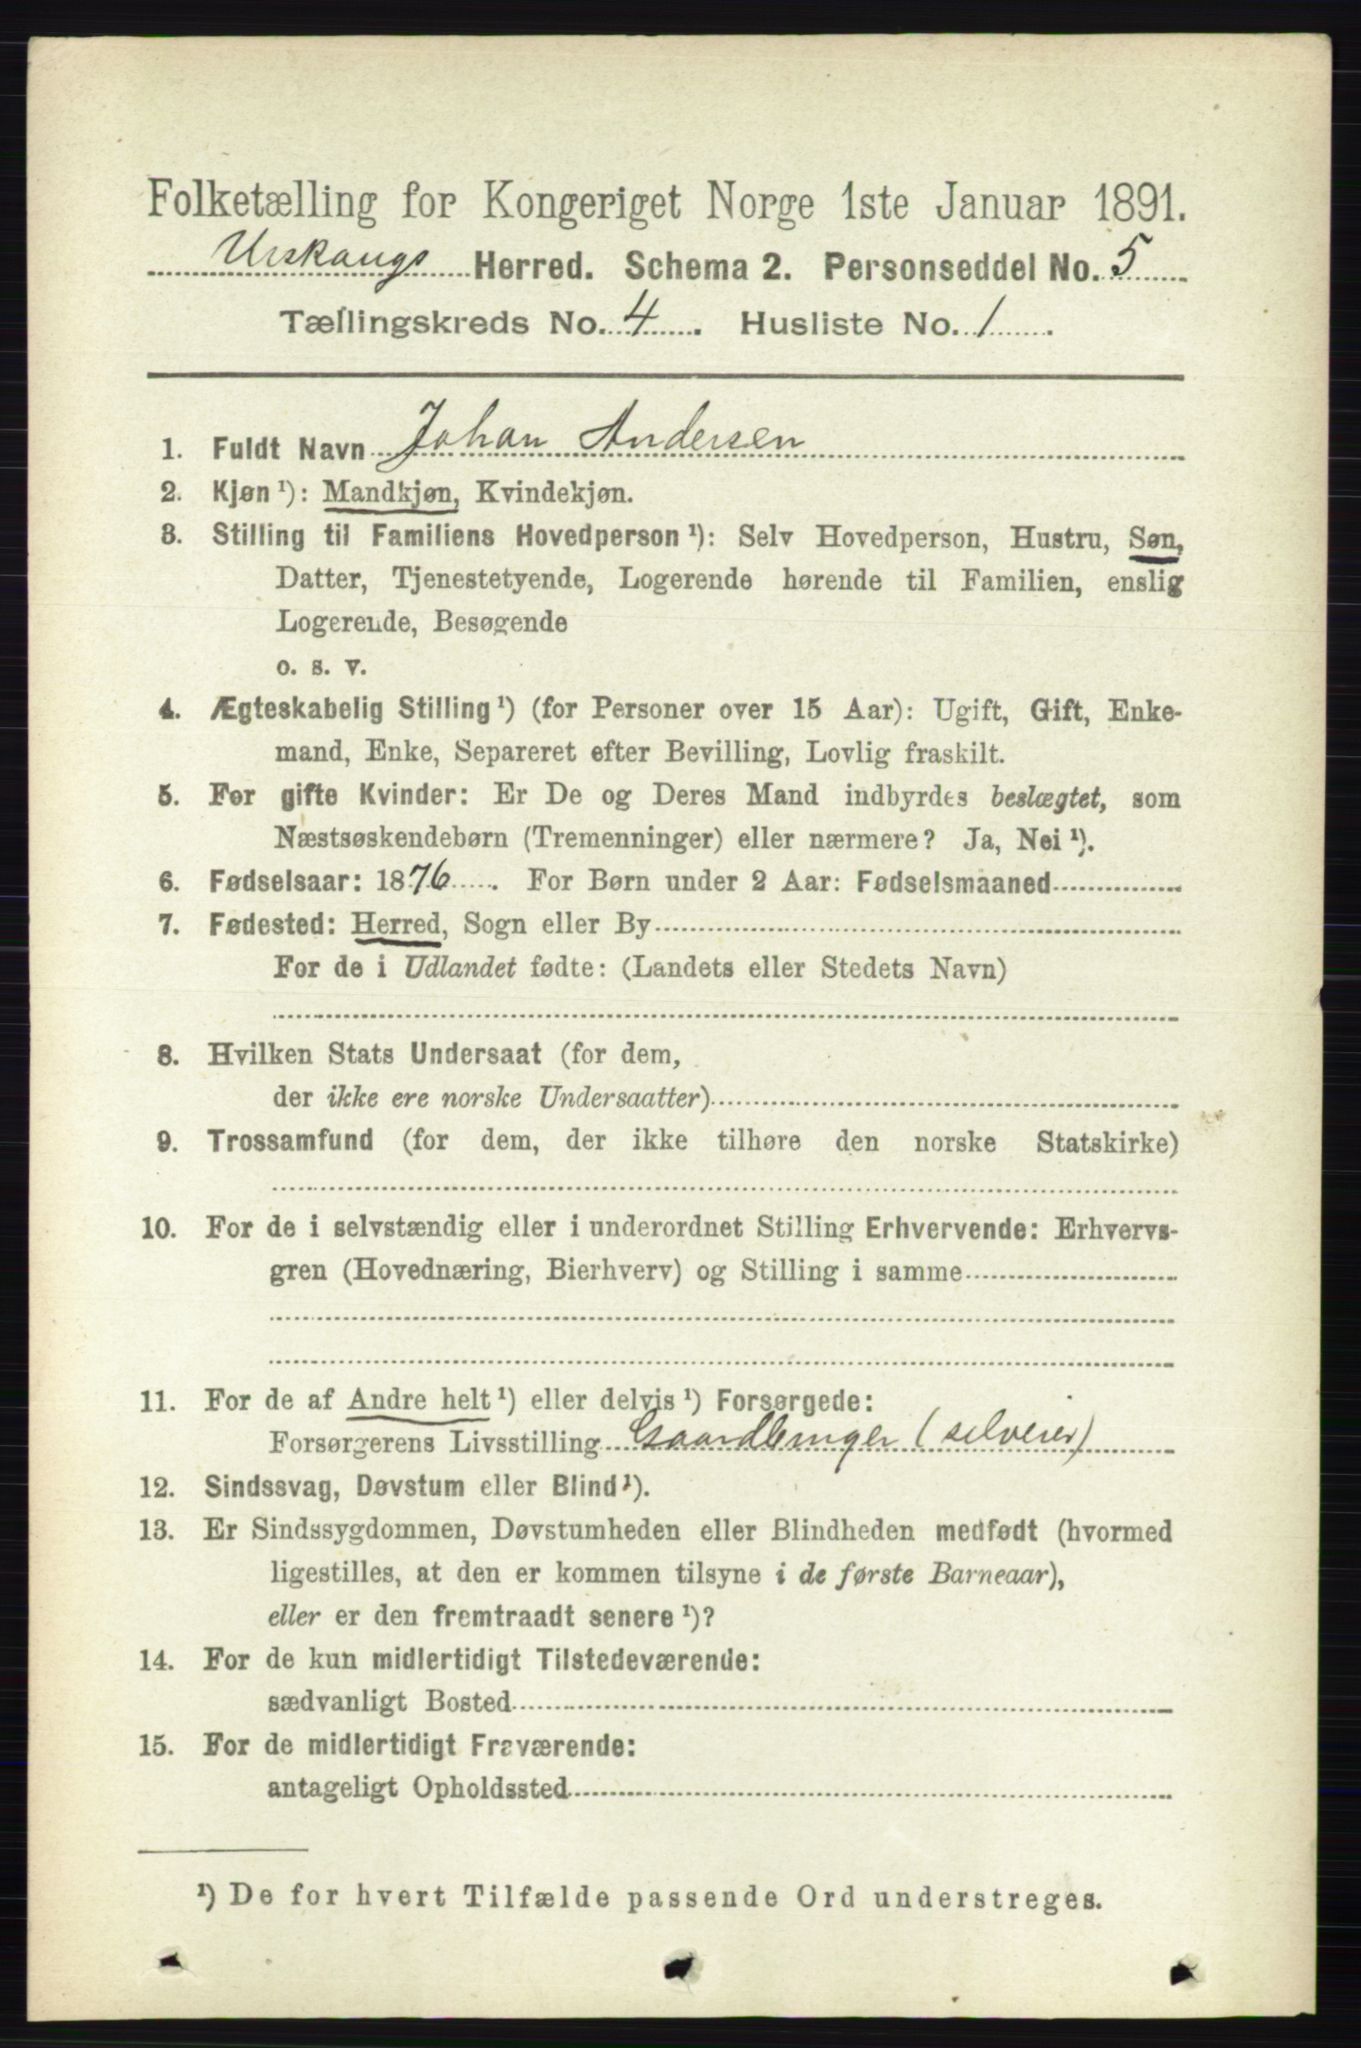 Folketælling for Kongeriget Norge 1ste Januar 1891.
Urskougs Herred. Schema 2. Personseddel No. 5
Tællingskreds No. 4. Husliste No. 1.
1. Fuldt Navn Johan Andersen
2. Kjøn ¹): Mandkjøn, Kvindekjøn.
3. Stilling til Familiens Hovedperson ¹): Selv Hovedperson, Hustru, Søn,
Datter, Tjenestetyende, Logerende hørende til Familien, enslig
Logerende, Besøgende
o. s. v.
4. Ægteskabelig Stilling ¹) (for Personer over 15 Aar): Ugift, Gift, Enke-
mand, Enke, Separeret efter Bevilling, Lovlig fraskilt.
5. For gifte Kvinder: Er De og Deres Mand indbyrdes beslægtet, som
Næstsøskendebørn (Tremenninger) eller nærmere? Ja, Nei ¹).
6. Fødselsaar: 1876. For Børn under 2 Aar: Fødselsmaaned
7. Fødested: Herred, Sogn eller By
For de i Udlandet fødte: (Landets eller Stedets Navn)
8. Hvilken Stats Undersaat (for dem,
der ikke ere norske Undersaatter)
9. Trossamfund (for dem, der ikke tilhøre den norske Statskirke)
10. For de i selvstændig eller i underordnet Stilling Erhvervende: Erhvervs-
gren (Hovednæring, Bierhverv) og Stilling i samme
11. For de af Andre helt ¹) eller delvis ¹) Forsørgede:
Forsørgerens Livsstilling Gaardbruger (selveier)
12. Sindssvag, Døvstum eller Blind ¹).
13. Er Sindssygdommen, Døvstumheden eller Blindheden medfødt (hvormed
ligestilles, at den er kommen tilsyne i de første Barneaar),
eller er den fremtraadt senere ¹)?
14. For de kun midlertidigt Tilstedeværende:
sædvanligt Bosted
15. For de midlertidigt Fraværende:
antageligt Opholdssted
¹) De for hvert Tilfælde passende Ord understreges.